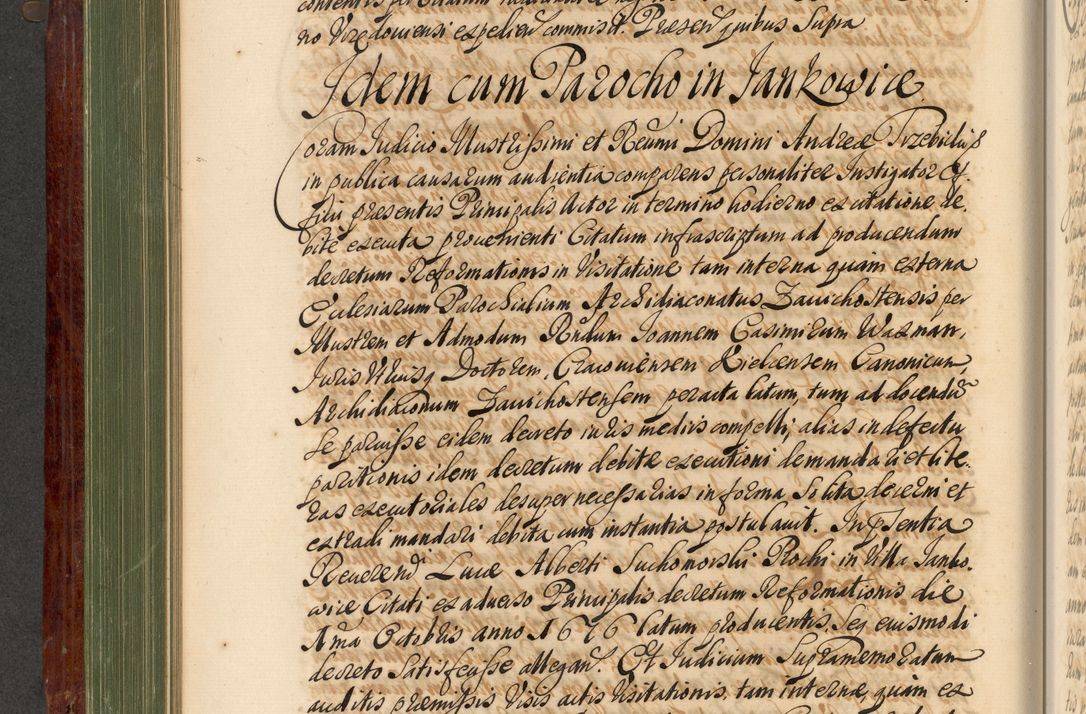 no Vzedouiensi expedien commisit. Præsen quibus Supra
Idem cum Parocho in Jankowice
Coram Iudicio Illustrissimi et Reuñi Domini Andreæ Trzebicki &
in publica causarum audientia comparens personaliter Instigator Of-
ficii præsentis Principalis Actor in termino hodierno ex citatione de-
bite executa proueniente Citatum infrascriptum ad producendum
decretum Reformationis in Visitatione tam interna quàm externa
Ecclesiarum Parochialium Archidiaconatus Zauichostensis per
Illustrem et Admodum Rñdum Ioannem Casimirum Waznan,
Iuris Vtriusq Doctorem, Cracouiensem Kielcensem Canonicum,
Archidiaconum Zauichostensem peracta latum, tum ad docendũ
se paruisse eidem decreto iuris medijs compelli, alias in defectu
paritionis idem decretum debitæ executioni demandari et lite-
ras executoriales desuper necessarias in forma solita decerni et
extradi mandari debita cum instantia postulauit. In pñsentia
Reuerendi Lucæ Alberti Suchomorski Pñochi in Villa Janko-
wice Citati ex aduerso Principalis decretum Reformationis die
Ima Octobris anno 1676 latum producentis, Seq eiusmodi
decreto Satisfecisse allegan. Et Iudicium Supramemoratum
auditis præmissis Visis actis Visitationis, tam internæ, quàm ex